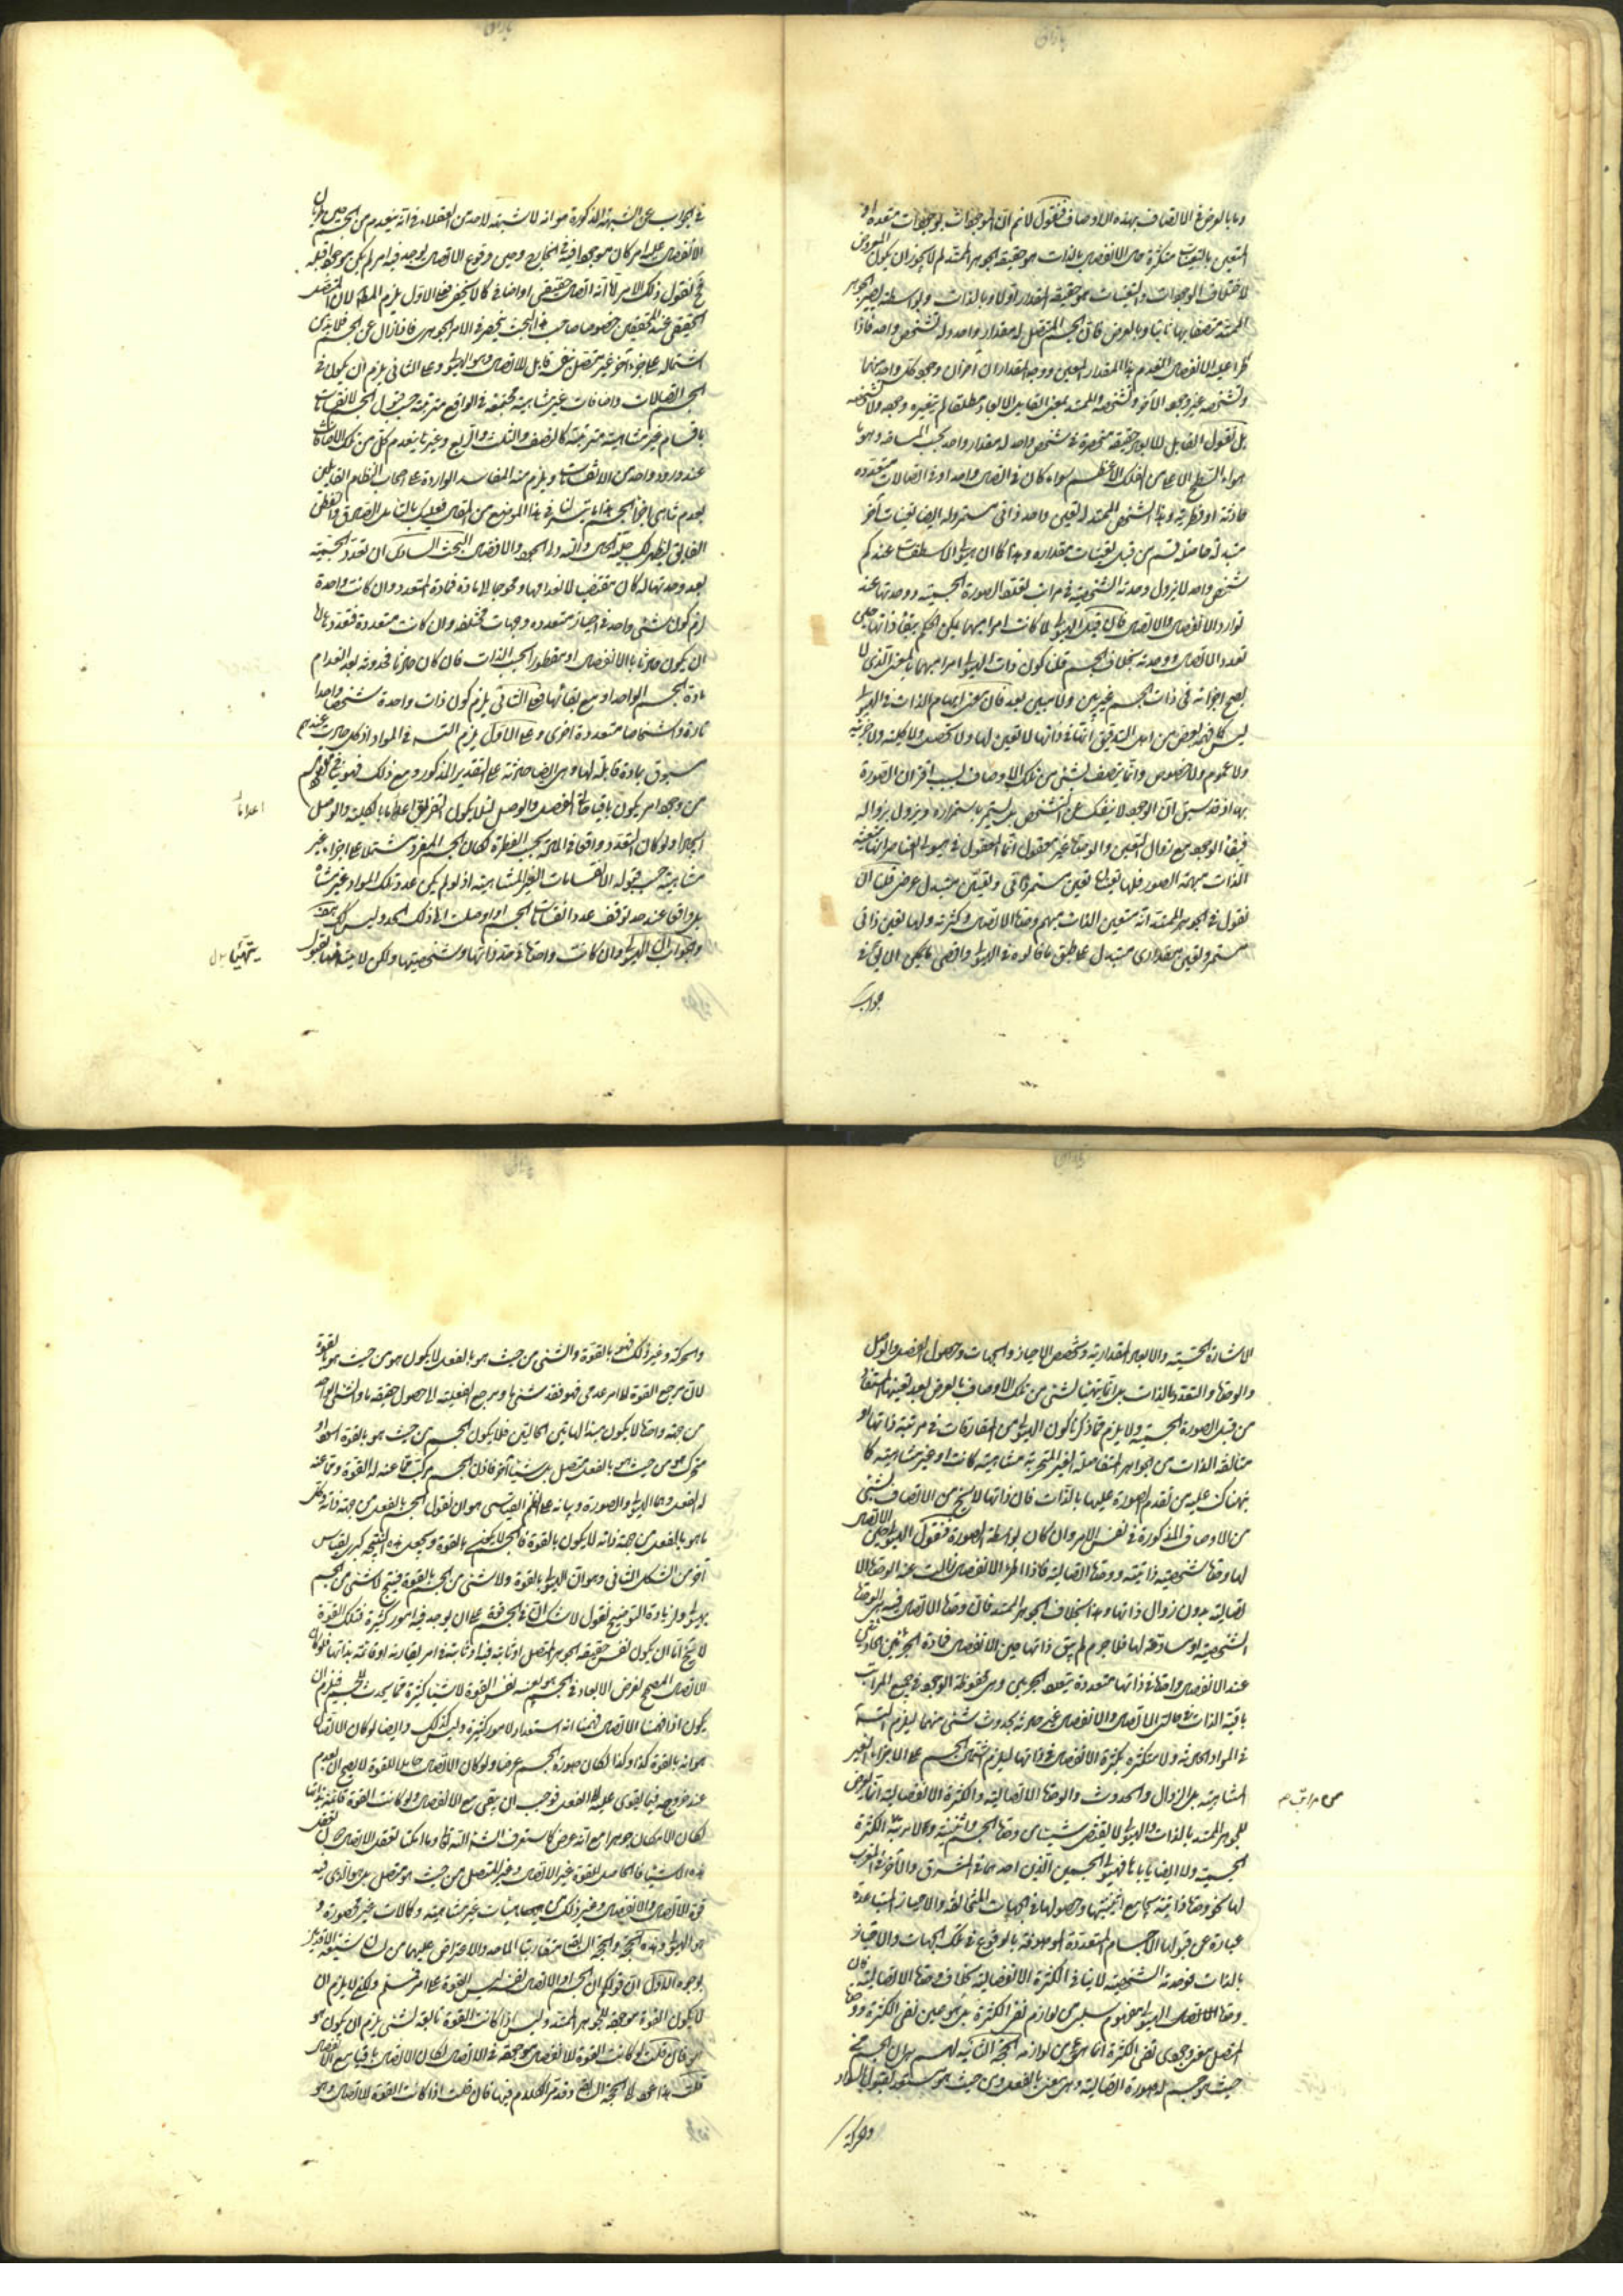 وما بالعرض في الاتصاف بهذه الاوصاف فنقول لانم ان الموجودات بوجودات متعددة او
المتعين بالتعينات متكثرة هي الانفصال بالذات هو حقيقة الجوهر الممتد لم لا يجوز ان يكون المعروض
لاختلاف الوجودات والتعينات هو حقيقة المقدار اولا وبالذات وبواسطته يصير الجوهر
الممتد متصفا بها ثانيا وبالعرض فان الجسم المتصل له مقدار واحد وله تشخص واحد فاذا
طرا عليه الانفصال انعدم هذا المقدار المعين ووجد مقداران آخران ووجود كل واحد منهما
وتشخصه غير وجود الآخر وتشخصه والممتد بمعنى القابل للابعاد مطلقا لم يتغير وجوده ولا تشخصه
بل نقول القابل للابعاد حقيقة منحصرة في شخص واحد له مقدار واحد بحسب المساحة وهو ما
حواه السطح الاعلى من الفلك الاعظم سواء كان في اتصال واحد او في اتصالات متعددة
حادثة او فطرية وهذا الشخص الممتد له تعين واحد ذاتي مستمر وله ايضا تعينات اخر
متبدلة حاصلة فيه من قبل تعينات مقداره وهذا كما ان هيولى الاسطقسات عندكم
شخص واحد لا يزول وحدته الشخصية في مراتب تعدد الصورة الجسمية ووحدتها عند
توارد الانفصال والاتصال فان قيل الهيولى لما كانت امرا مبهما يمكن الحكم ببقاء ذاتها حين
تعدد الاتصال ووحدته بخلاف الجسم قلنا كون ذات الهيولى امرا مبهما بالمعنى الذي لا
يصح اجراؤه في ذات الجسم غير بين ولا مبين بعد فان معنى ابهام الذات في الهيولى
ليس كما فهمه بعض من اهل التدقيق انها في ذاتها لا تعين لها ولا تحصل ولا كلية ولا جزئية
ولا عموم ولا خصوص وانما يتصف بشيء من تلك الاوصاف بسبب اقتران الصورة
بها اذ قد سبق ان الوجود لا ينفك عن التشخص بل يستمر باستمراره ويزول بزواله
فبقاء الوجود مع زوال التعين والوحدة غير معقول انما المعقول في هيولى العناصر انها متعينة
الذات مبهمة الصور فلها تعينان تعين مستمر ذاتي وتعين متبدل عرضي فلنا ان
نقول في الجوهر الممتد انه متعين الذات مبهم وحدة الاتصال وكثرته ولها تعين ذاتي
مستمر وتعين مقداري متبدل على طبق ما قالوه في الهيولى واقصى ما يمكن ان يق في
جواب
في الجواب عن الشبهة المذكورة هو انه لا شبهة لاحد من العقلاء في انه ينعدم من الجسم حين طريان
الانفصال عليه امر كان موجودا فيه في الخارج وحين وقوع الاتصال يوجد فيه امر لم يكن موجودا قبله
فح نقول ذلك الامر لا انه اتصال حقيقي او اضافي كما لا يخفى فعلى الاول يلزم المط لان المتصل
الحقيقي عند المحققين خصوصا صاحب هذا البحث ينحصر في الامر الجوهري فاذا زال عن الجسم فلا بد من
اشتماله على جزء آخر غير متصل بنفسه قابل للاتصال وهو الهيولى وعلى الثاني يلزم ان يكون في
الجسم اتصالات واضافات غير متناهية مجتمعة في الواقع مترتبة حسب قبول الجسم لانقسامات
باقسام غير متناهية مترتبة كالنصف والثلث والربع وغيرها ينعدم كل من تلك الاضافات
عند ورود واحد من الانقسامات ويلزم منه المفاسد الواردة على اصحاب النظام القائلين
بعدم تناهي اجزاء الجسم هذا ما تيسر لنا في هذا الموضع من المقال فعليك بالتامل الصادق والتعطن
الفائق ليظهر لك جلية الحال والله ولي الجود والافضال البحث السادس ان تعدد الجسمية
بعد وحدتها لو كان مقتضيا لانعدامها ومحوجا الى مادة فمادة المتعدد وان كانت واحدة
لزم كون شيء واحد في احياز متعددة وجهات مختلفة وان كانت متعددة فتعددها اما
ان يكون حادثا بالانفصال او مفطورا بحسب الذات فان كان حادثا فحدوثه بعد انعدام
مادة الجسم الواحد او مع بقائها فعلى الثاني يلزم كون ذات واحدة شخصا واحدا
تارة واشخاصا متعددة اخرى وعلى الاول يلزم التسلسل في المواد اذ كل حادث عندهم
مسبوق بمادة قابلة لها وهي ايضا حادثة على التقدير المذكور ومع ذلك فهو ينافي غرضكم
من وجود امر يكون باقيا في الفصل والوصل لئلا يكون التفريق اعداما بالكلية والوصل
اعداما
ايجادا ولو كان التعدد واقعا في المادة بحسب الفطرة لكان الجسم المفرد مشتملا على اجزاء غير
متناهية حسب قبوله الانقسامات الغير المتناهية اذ لو لم يكن عدد تلك المواد غير متناه
بل واقفا عند حد توقف عدد انقسامات الجسم اذا وصلت الى ذلك الحد وليس كك هذا
والجواب ان الهيولى وان كانت واحدة في حد ذاتها وشخصيتها ولكن لا يتهيأ لقبول
الاشارة الحسية والابعاد المقدارية وتخصص الاحياز والجهات وحصول الفصل والوصل
والوحدة والتعدد بالذات بل انما يتهيأ لشيء من تلك الاوصاف بالعرض بعد تعينها المستفاد
من قبل الصورة الجسمية ولا يلزم مما ذكرنا كون الهيولى من المفارقات في مرتبة ذاتها او
متالفة الذات من الجواهر المتفاصلة الغير المتجزية متناهية كانت او غير متناهية كما
نبهناك عليه من تقدم الصورة عليها بالذات فان ذاتها لا ينسلخ من الاتصاف بشيء
من الاوصاف المذكورة في نفس الامر وان كان بواسطة الصورة فنقول الهيولى حين الاتصال
لها وحدة شخصية ذاتية ووحدة اتصالية فاذا طرا الانفصال زالت عنه الوحدة الا
تصالية بدون زوال ذاتها وهذا بخلاف الجوهر الممتد فان وحدة الاتصال فيه هي الوحدة
الشخصية او مساوقة لها فلا جرم لم يبق ذاتها حين الانفصال فمادة الجزئين الحادثين
عند الانفصال واحدة في ذاتها متعددة بتعدد الجزئين وهي محفوظة الوجود في جميع المراتب
باقية الذات في حالتي الاتصال والانفصال غير حادثة بحدوث شيء منهما ليلزم التسلسل
في المواد الحادثة ولا متكثرة بكثرة الانفصال في ذاتها ليلزم اشتمال الجسم على الاجزاء الغير
المتناهية بل الزوال والحدوث والوحدة الاتصالية والكثرة الانفصالية انما يعرض
للجوهر الممتد بالذات والهيولى لا يقتضي شيئا من وحدة الجسم واثنينيته ولا لازمة الكثرة
الجسمية ولا ايضا ياباها فهيولى الجسمين الذين احدهما في المشرق والآخر في المغرب
لها نحو وحدة ذاتية يجامع اثنينيتها وحصولها في الجهات المتخالفة والاحياز المتباعدة
عبارة عن قبولها الاجسام المتعددة الموصوفة بالوقوع في تلك الجهات والاحياز
بالذات فوحدته الشخصية لا ينافي الكثرة الانفصالية بخلاف وحدة الاتصالية فان
وحدة الاتصال الهيولى مفهوم سلبي من لوازم نفي الكثرة
المتصل معنى وجودي نفي الكثرة انما هو من لوازمه الحجة الثانية لهم ان الجسم من
حيث هو جسم له صورة اتصالية وهي معنى بالفعل ومن حيث هو مستعد لقبول السواد
والحركة
والحركة وغير ذلك فهو بالقوة والشيء من حيث هو بالفعل لا يكون هو من حيث هو بالقوة
لان مرجع القوة الى امر عدمي هو فقد شيء ما ومرجع الفعلية الى حصول حقيقة ما والشيء الواحد
من جهة واحدة لا يكون مبدا لهاتين الحالتين فلا يكون الجسم من حيث هو بالقوة اسود او
متحرك هو من حيث هو بالفعل متصل بل شيئا آخر فاذن الجسم مركب مما عنه له القوة ومما عنه
له الفعل وهما الهيولى والصورة وبيانه على النظم القياسي هو ان نقول الجسم بالفعل من جهة ذاته وكل
ما هو بالفعل من جهة ذاته لا يكون بالقوة فالجسم لا يكون بالقوة ويجعل هذه النتيجة كبرى لقياس
آخر من الشكل الثاني وهو ان الهيولى بالقوة ولا شيء من الجسم بالقوة فينتج لا شيء من الجسم
بهيولى ولزيادة التوضيح نقول لا شك ان في الجسم قوة على ان يوجد فيه امور كثيرة فتلك القوة
لا تخ اما ان يكون نفس حقيقة الجوهر المتصل او ثابتة فيه او ثابتة في امر يقارنه او قائمة بذاتها فلو كان
الاتصال المصحح لفرض الابعاد في الجسم هو بعينه نفس القوة لاشياء كثيرة مما يحدث للجسم فلزم ان
يكون اذا فهمنا الاتصال فهمنا انه استعداد لامور كثيرة وليس كذلك وايضا لو كان الاتصال
هو انه بالقوة كذا وكذا لكان صورة الجسم عرضا ولو كان الاتصال حاملا للقوة لا يصح ان يعدم
عند خروجه فيما يقوى عليه الى الفعل فوجب ان يبقى مع الانفصال ولو كانت القوة قائمة بذاتها
لكان الامكان جوهرا مع انه عرض كما ستعرف انشاء الله تعالى
هذه الاشياء فالحامل للقوة غير الاتصال وغير المتصل من حيث هو متصل بل هو الذي فيه
قوة الاتصال والانفصال وغير ذلك من هيئات غير متناهية وكمالات غير محصورة و
هو الهيولى وهذه الحجة والحجة السابقة متقاربتا الماخذ والاعتراض عليهما من لسان شيعة الاقدمين
بوجوه الاول ان قولكم ان الجسم او الاتصال نفسه ليس القوة على امر مسلم ولكن لا يلزم ان
لا يكون القوة موجودة للجوهر الممتد وليس اذا كانت القوة تابعة لشيء يلزم ان يكون هو
هو فان قلت لو كانت القوة للانفصال موجودة في الاتصال لكان الاتصال باقيا مع الانفصال
قلت هذا عود الى الحجة السابقة وقد مر الكلام فيها فان قلت اذا كانت القوة للاتصال وهو